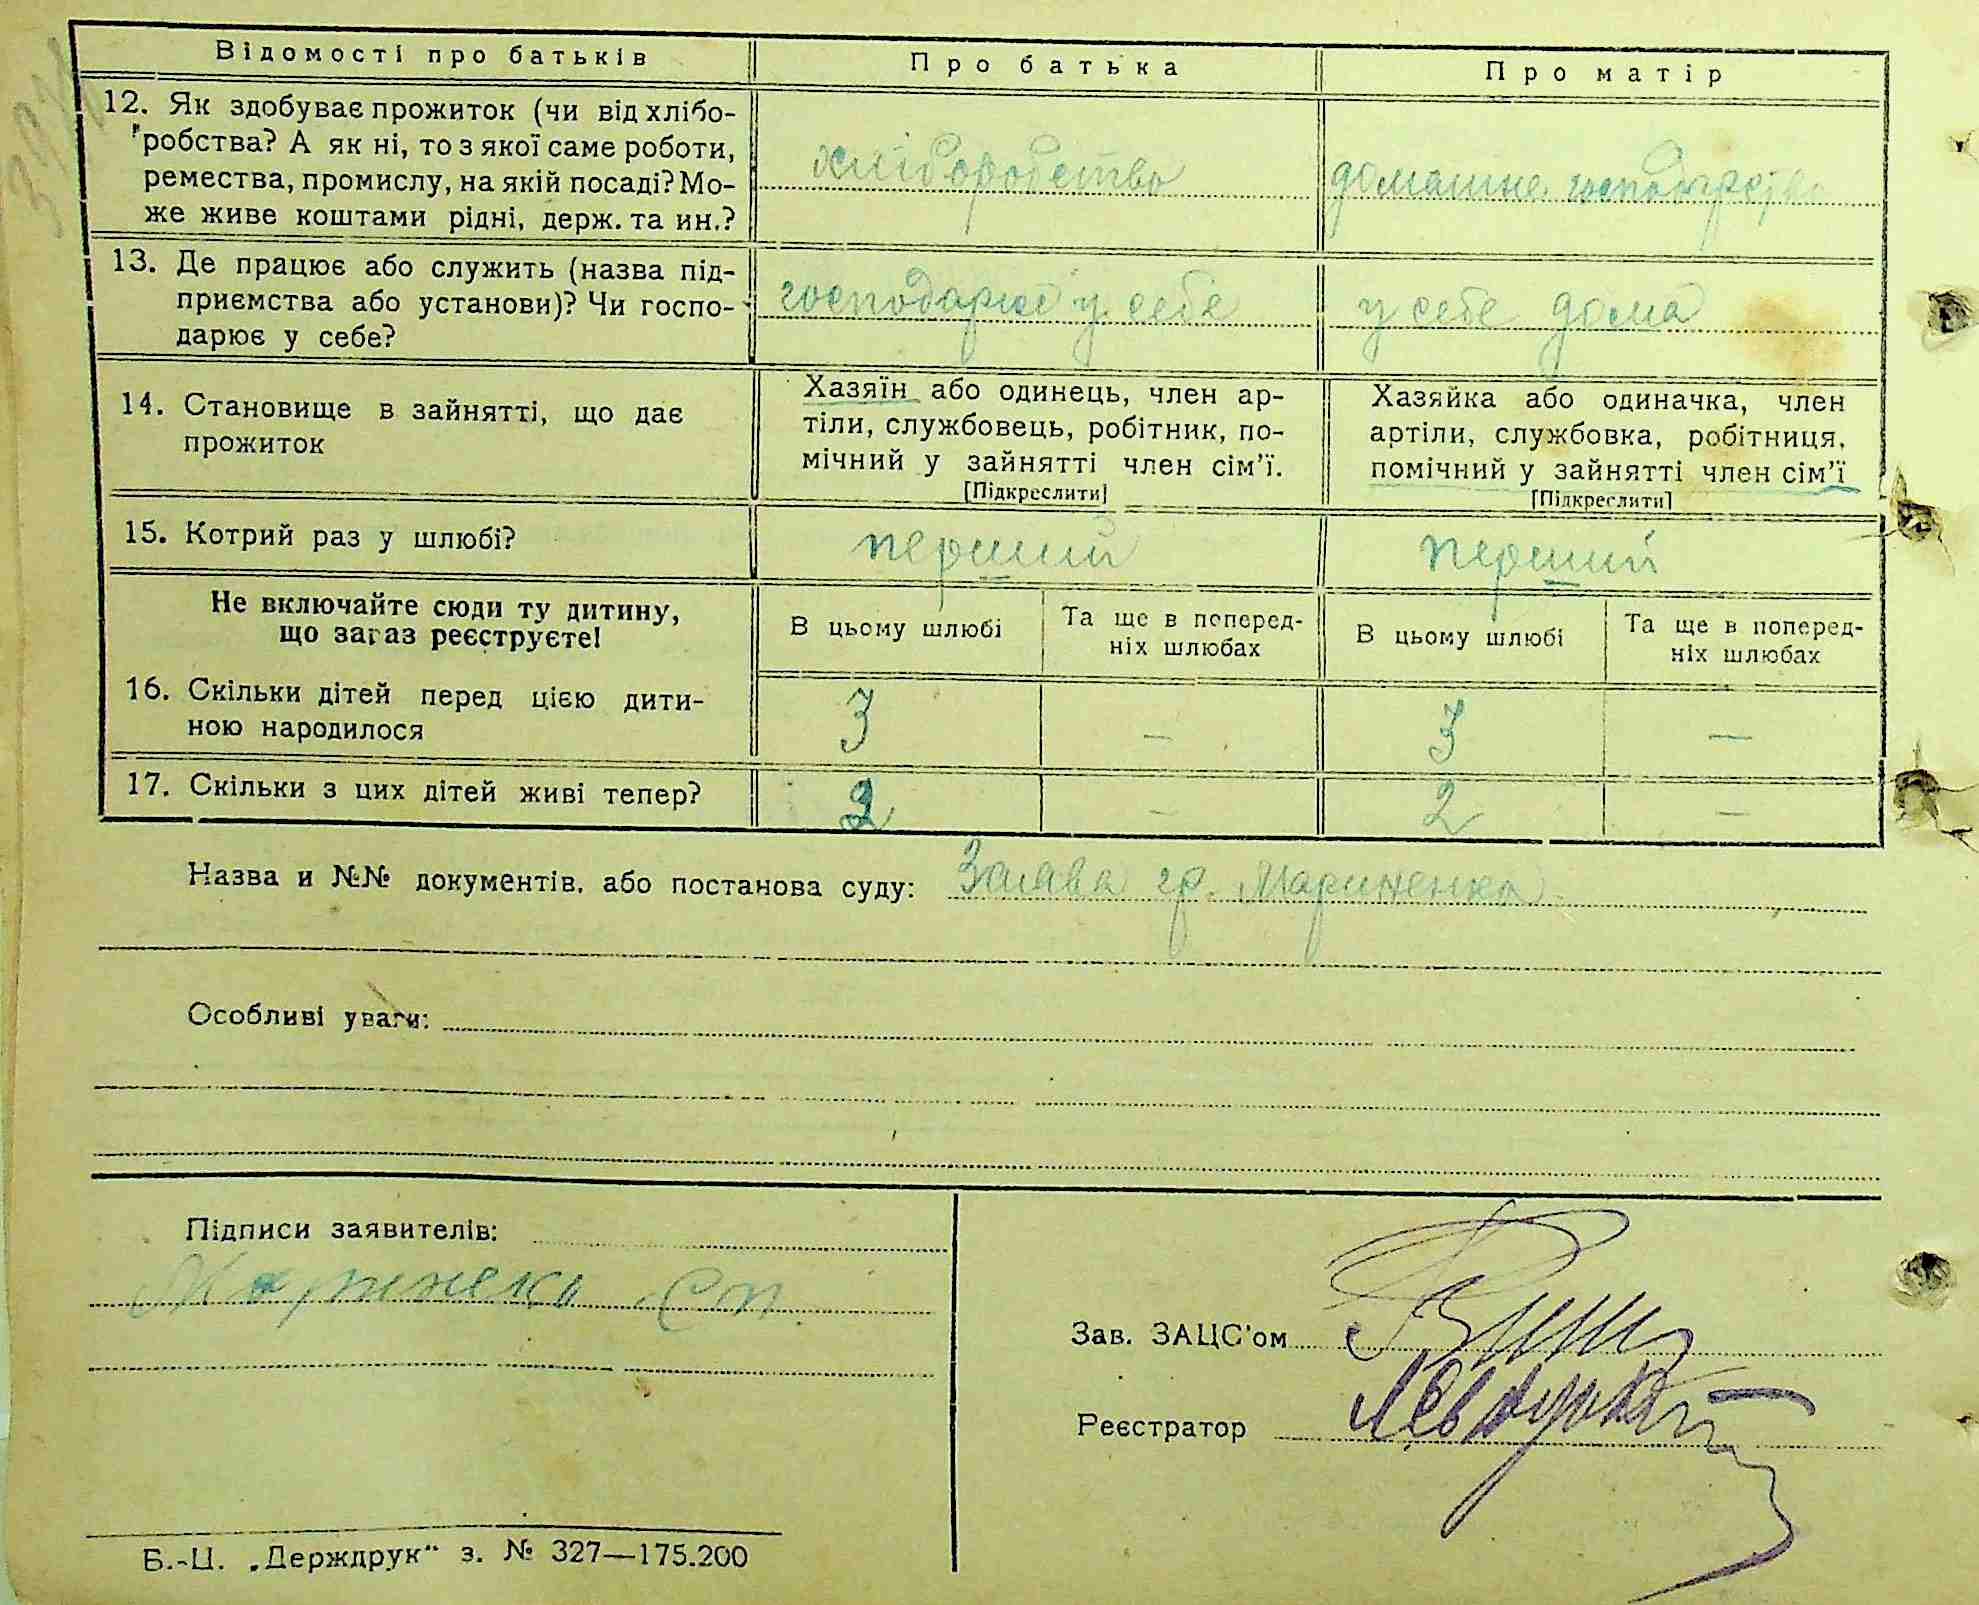 Відомості про батьків
Про батька
Про матір
12. Як здобуває прожиток (чи від хлібо-
робства? А як ні, то з якої саме роботи,
ремества, промислу, на якій посаді? Мо-
же живе коштами рідні, держ. та ин.?
хліборобство
домашнє господарство
13. Де працює або служить (назва під-
приємства або установи)? Чи госпо-
дарює у себе?
господарює у себе
у себе дома
14. Становище в зайнятті, що дає
прожиток
Хазяїн або одинець, член ар-
тіли, службовець, робітник, по-
мічний у зайнятті член сім'ї.
[Підкреслити]
Хазяйка або одиначка, член
артіли, службовка, робітниця,
помічний у зайнятті член сім'ї
[Підкреслити]
15. Котрий раз у шлюбі?
перший
перший
Не включайте сюди ту дитину,
що зараз реєструєте!
В цьому шлюбі
Та ще в поперед-
ніх шлюбах
В цьому шлюбі
Та ще в поперед-
ніх шлюбах
16. Скільки дітей перед цією дити-
ною народилося
3
—
3
—
17. Скільки з цих дітей живі тепер?
2
—
2
—
Назва и №№ документів, або постанова суду: Заява гр. Мариненка
Особливі уваги:
Підписи заявителів:
Зав. ЗАЦС'ом
Реєстратор
Б.-Ц. „Держдрук" з. № 327—175.200